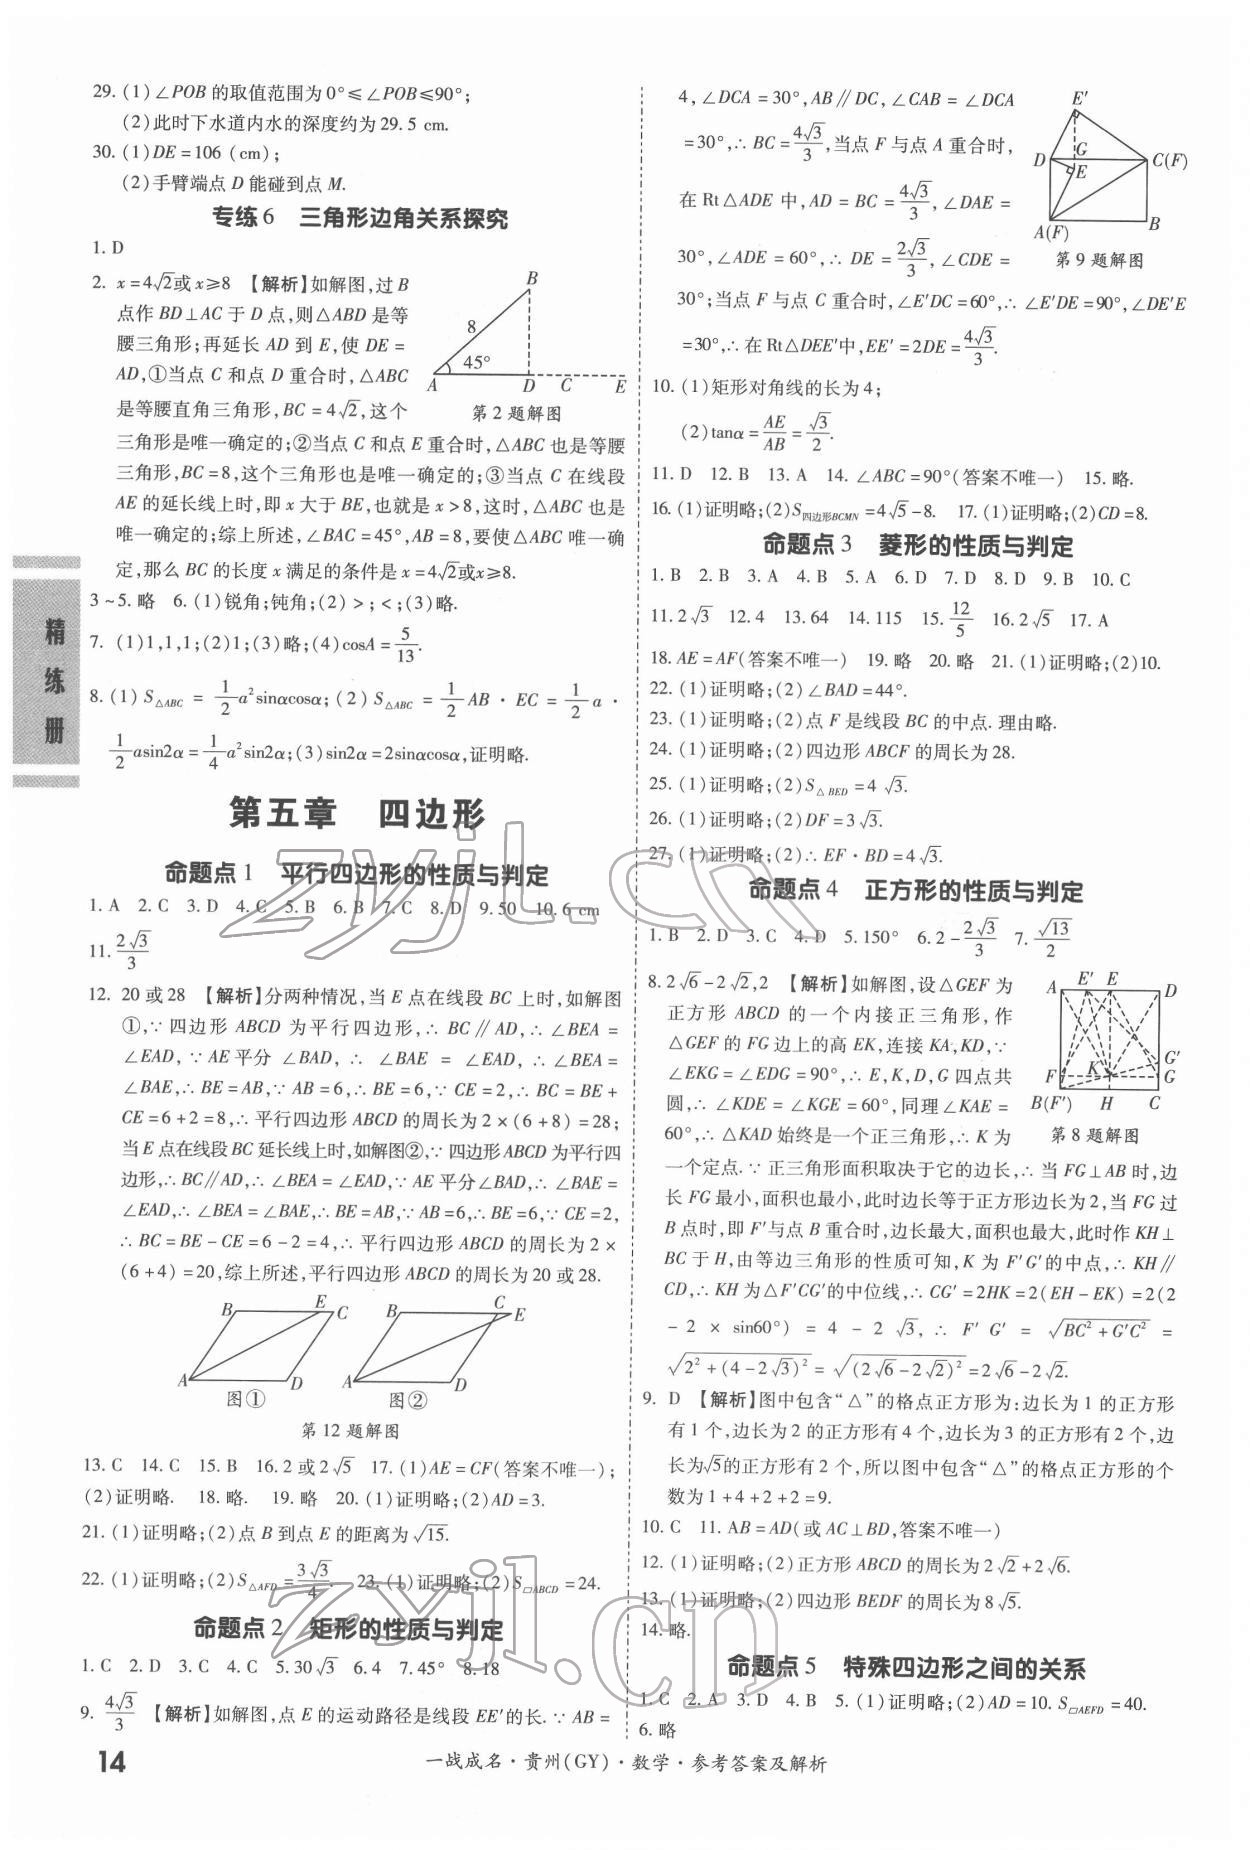 29. (1)∠POB 的取值范围为 0°≤∠POB≤90°;
(2)此时下水道内水的深度约为 29.5 cm.
30. (1)DE=106 (cm);
(2)手臂端点 D 能碰到点 M.
专练6 三角形边角关系探究
1. D
2. x=4√2或 x≥8 【解析】如解图,过 B
点作 BD⊥AC 于 D 点,则△ABD 是等
腰三角形;再延长 AD 到 E,使 DE=
AD,①当点 C 和点 D 重合时,△ABC
是等腰直角三角形,BC=4√2,这个
B
8
45°
A D C E
第 2 题解图
三角形是唯一确定的;②当点 C 和点 E 重合时,△ABC 也是等腰
三角形,BC=8,这个三角形也是唯一确定的;③当点 C 在线段
AE 的延长线上时,即 x 大于 BE,也就是 x>8,这时,△ABC 也是
唯一确定的;综上所述,∠BAC=45°,AB=8,要使△ABC 唯一确
定,那么 BC 的长度 x 满足的条件是 x=4√2或x≥8.
3~5. 略 6. (1)锐角;钝角;(2)>;<;(3)略.
7. (1)1,1,1;(2)1;(3)略;(4)cosA=5/13.
8. (1) S△ABC = 1/2 a²sinαcosα; (2) S△ABC = 1/2 AB · EC = 1/2 a ·
1/2 asin2α = 1/4 a²sin2α;(3)sin2α=2sinαcosα,证明略.
第五章 四边形
命题点1 平行四边形的性质与判定
1. A 2. C 3. D 4. C 5. B 6. B 7. C 8. D 9. 50 10. 6 cm
11. 2√3/3
12. 20 或 28 【解析】分两种情况,当 E 点在线段 BC 上时,如解图
①,∵四边形 ABCD 为平行四边形,∴BC∥AD,∴∠BEA=
∠EAD,∵AE 平分∠BAD,∴∠BAE=∠EAD,∴∠BEA=
∠BAE,∴BE=AB,∵AB=6,∴BE=6,∵CE=2,∴BC=BE+
CE=6+2=8,∴平行四边形 ABCD 的周长为 2×(6+8)=28;
当 E 点在线段 BC 延长线上时,如解图②,∵四边形 ABCD 为平行四
边形,∴BC∥AD,∴∠BEA=∠EAD,∵AE 平分∠BAD,∴∠BAE=
∠EAD,∴∠BEA=∠BAE,∴BE=AB,∵AB=6,∴BE=6,∵CE=2,
∴BC=BE-CE=6-2=4,∴平行四边形 ABCD 的周长为 2×
(6+4)=20,综上所述,平行四边形 ABCD 的周长为 20 或 28.
B E C A D
图①
B C E A D
图②
第 12 题解图
13. C 14. C 15. B 16. 2 或 2√5 17. (1)AE=CF(答案不唯一);
(2)证明略. 18. 略. 19. 略 20. (1)证明略;(2)AD=3.
21. (1)证明略;(2)点 B 到点 E 的距离为√15.
22. (1)证明略;(2)S△AFD=3√3/4. 23. (1)证明略;(2)S▱ABCD=24.
命题点2 矩形的性质与判定
1. C 2. D 3. C 4. C 5. 30√3 6. 4 7. 45° 8. 18
9. 4√3/3 【解析】如解图,点 E 的运动路径是线段 EE′的长. ∵AB=
4,∠DCA=30°,AB∥DC,∠CAB=∠DCA
=30°,∴BC=4√3/3,当点 F 与点 A 重合时,
在 Rt△ADE 中,AD=BC=4√3/3,∠DAE=
30°,∠ADE=60°,∴DE=2√3/3,∠CDE=
E′
D G C(F)
E
A(F) B
第 9 题解图
30°;当点 F 与点 C 重合时,∠E′DC=60°,∴∠E′DE=90°,∠DE′E
=30°,∴在 Rt△DEE′中,EE′=2DE=4√3/3.
10. (1)矩形对角线的长为 4;
(2)tanα=AE/AB=√3/2.
11. D 12. B 13. A 14. ∠ABC=90°(答案不唯一) 15. 略.
16. (1)证明略;(2)S四边形BCMN=4√5-8. 17. (1)证明略;(2)CD=8.
命题点3 菱形的性质与判定
1. B 2. B 3. A 4. B 5. A 6. D 7. D 8. D 9. B 10. C
11. 2√3 12. 4 13. 64 14. 115 15. 12/5 16. 2√5 17. A
18. AE=AF(答案不唯一) 19. 略 20. 略 21. (1)证明略;(2)10.
22. (1)证明略;(2)∠BAD=44°.
23. (1)证明略;(2)点 F 是线段 BC 的中点. 理由略.
24. (1)证明略;(2)四边形 ABCF 的周长为 28.
25. (1)证明略;(2)S△BED=4√3.
26. (1)证明略;(2)DF=3√3.
27. (1)证明略;(2)∴EF·BD=4√3.
命题点4 正方形的性质与判定
1. B 2. D 3. C 4. D 5. 150° 6. 2-2√3/3 7. √13/2
8. 2√6-2√2,2 【解析】如解图,设△GEF 为
正方形 ABCD 的一个内接正三角形,作
△GEF 的 FG 边上的高 EK,连接 KA,KD,∵
∠EKG=∠EDG=90°,∴E,K,D,G 四点共
圆,∴∠KDE=∠KGE=60°,同理∠KAE=
60°,∴△KAD 始终是一个正三角形,∴K 为
A E′ E D
G′
F K G
B(F′) H C
第 8 题解图
一个定点. ∵正三角形面积取决于它的边长,∴当 FG⊥AB 时,边
长 FG 最小,面积也最小,此时边长等于正方形边长为 2,当 FG 过
B 点时,即 F′与点 B 重合时,边长最大,面积也最大,此时作 KH⊥
BC 于 H,由等边三角形的性质可知,K 为 F′G′的中点,∴KH∥
CD,∴KH 为△F′CG′的中位线,∴CG′=2HK=2(EH-EK)=2(2
-2×sin60°)=4-2√3,∴F′G′=√(BC²+G′C²)=
√(2²+(4-2√3)²)=√((2√6-2√2)²)=2√6-2√2.
9. D 【解析】图中包含“△”的格点正方形为:边长为 1 的正方形
有 1 个,边长为 2 的正方形有 4 个,边长为 3 的正方形有 2 个,边
长为√5的正方形有 2 个,所以图中包含“△”的格点正方形的个
数为 1+4+2+2=9.
10. C 11. AB=AD(或 AC⊥BD,答案不唯一)
12. (1)证明略;(2)正方形 ABCD 的周长为 2√2+2√6.
13. (1)证明略;(2)四边形 BEDF 的周长为 8√5.
14. 略.
命题点5 特殊四边形之间的关系
1. C 2. A 3. D 4. B 5. (1)证明略;(2)AD=10. S▱AEFD=40.
6. 略
精练册
14
一战成名·贵州(GY)·数学·参考答案及解析
zyjl.cn
zyjl.cn